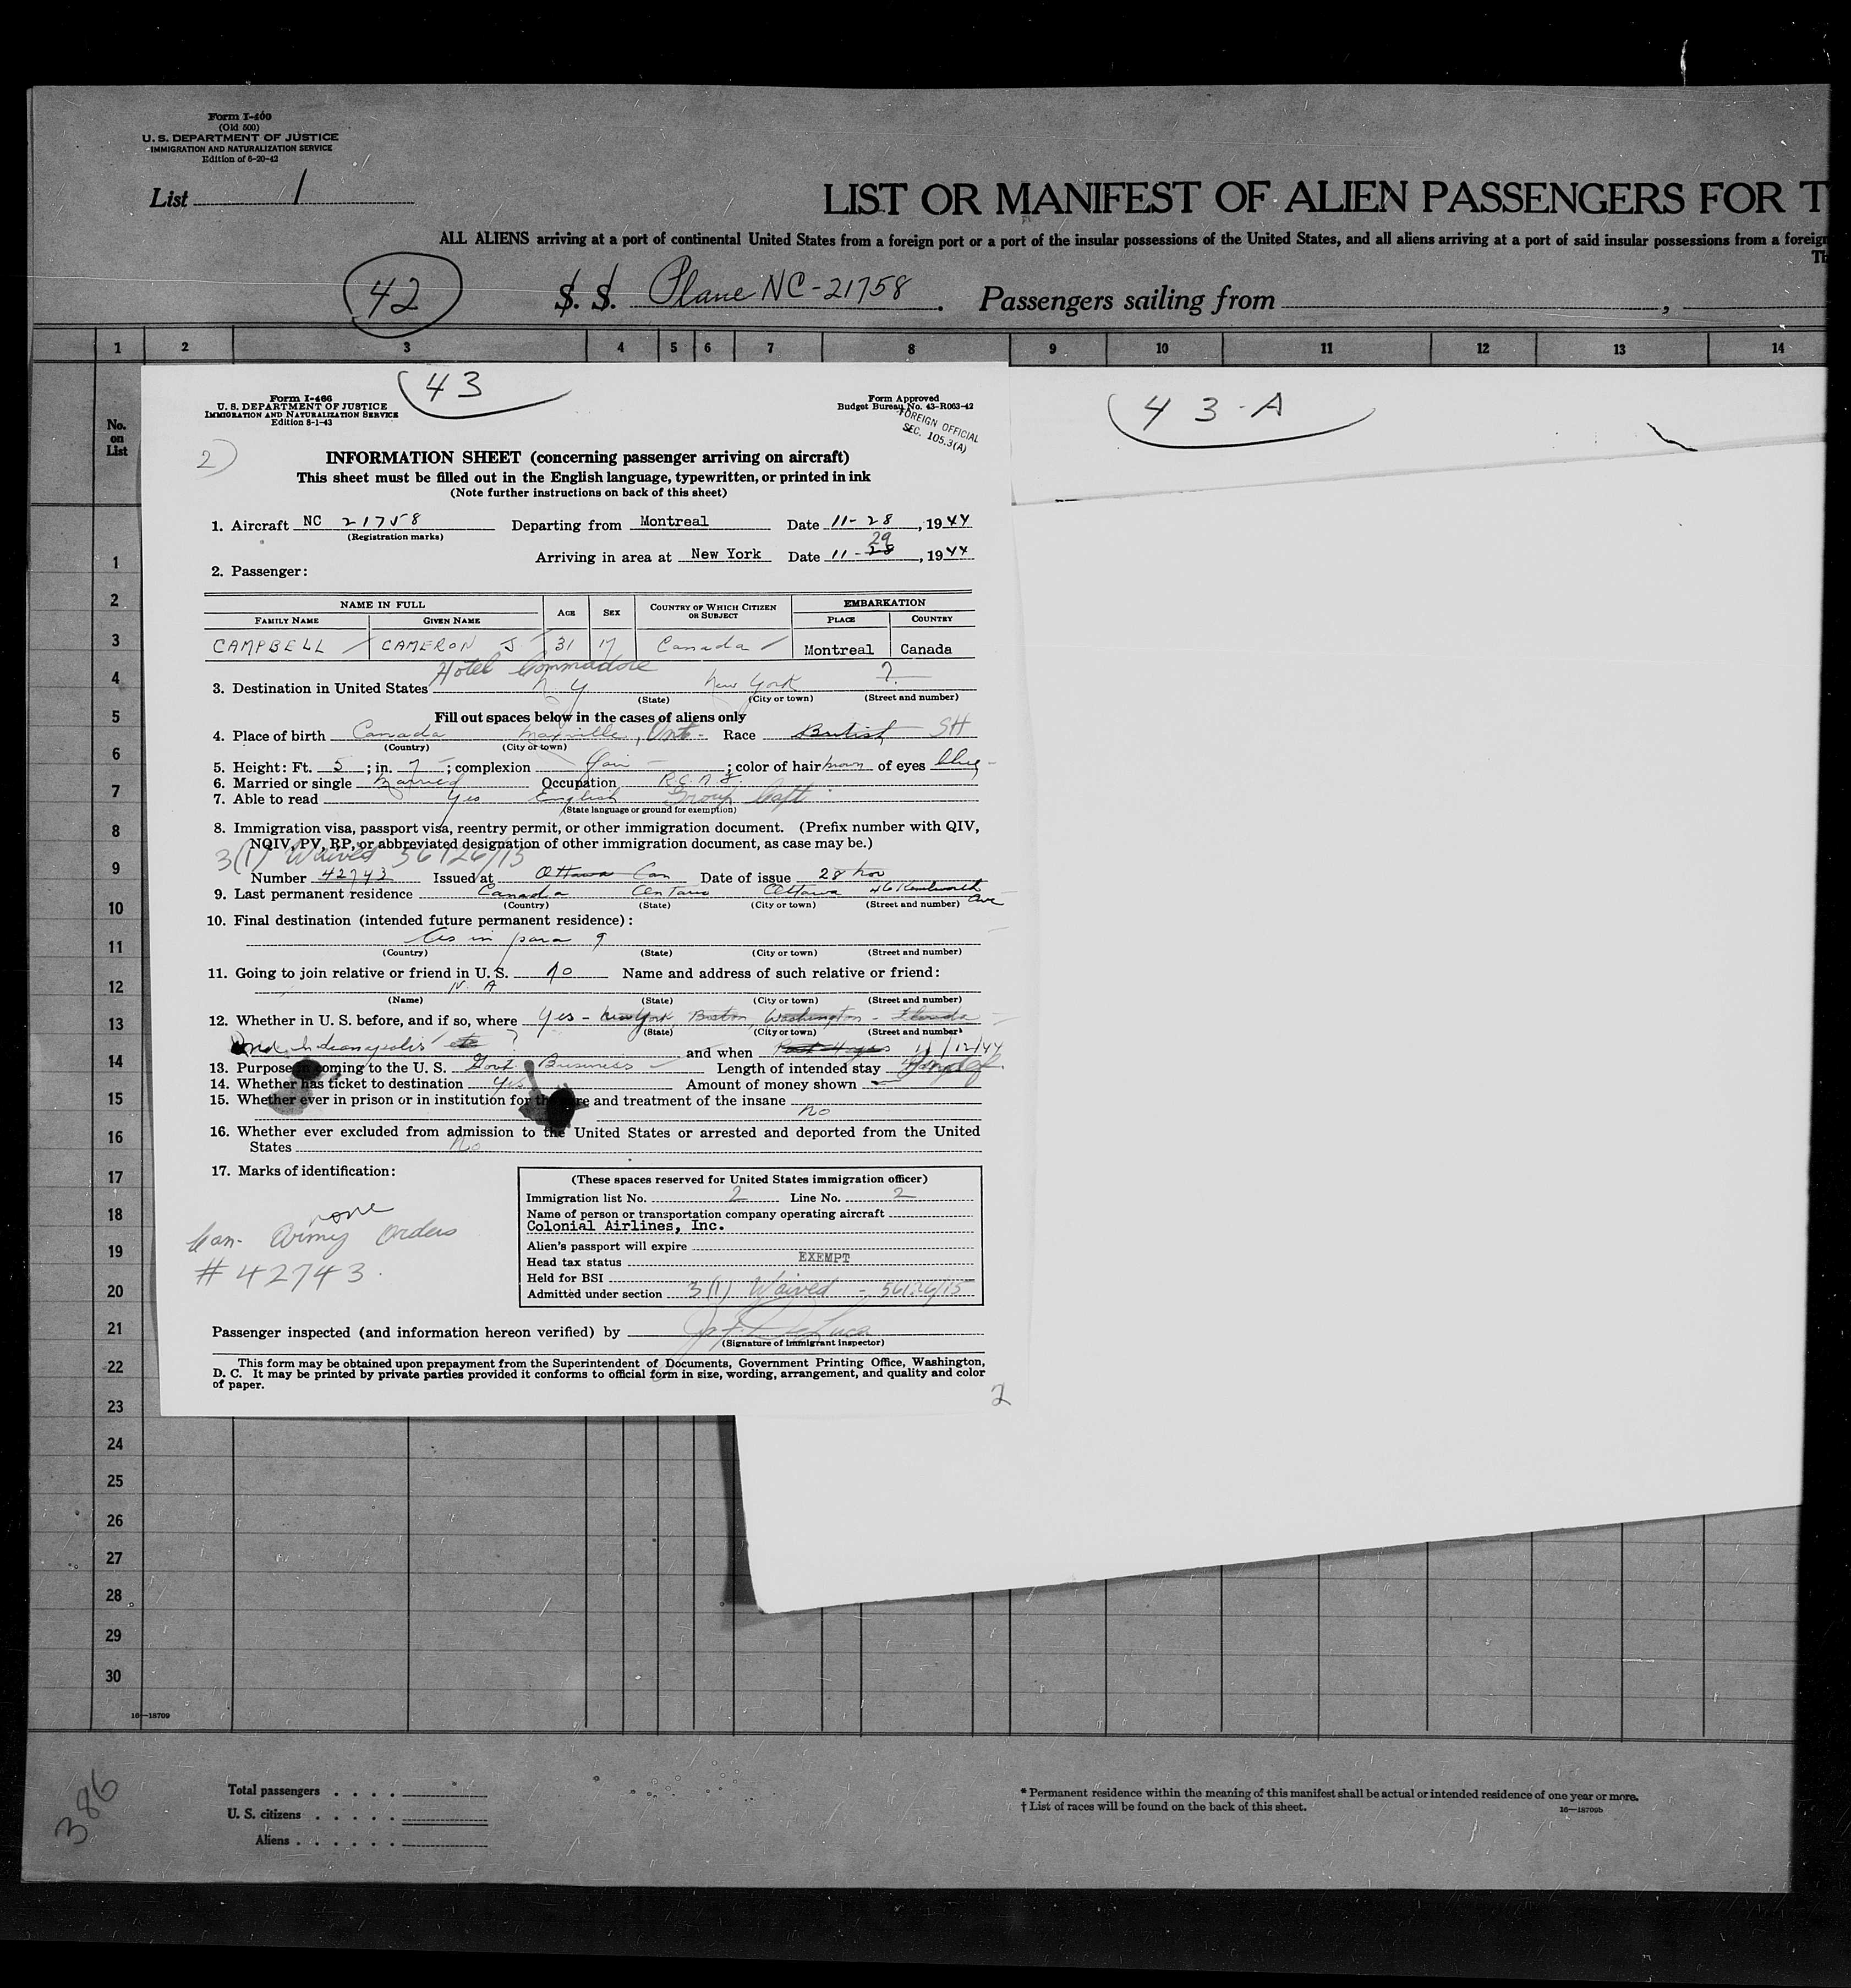 Form I-400
(Old 500)
U. S. DEPARTMENT OF JUSTICE
IMMIGRATION AND NATURALIZATION SERVICE
Edition of 6-20-42
List 1
LIST OR MANIFEST OF ALIEN PASSENGERS FOR T
ALL ALIENS arriving at a port of continental United States from a foreign port or a port of the insular possessions of the United States, and all aliens arriving at a port of said insular possessions from a foreign
Th
42 S. S. Plane NC-21758. Passengers sailing from ,
1 2 3 4 5 6 7 8 9 10 11 12 13 14
No. on List
43
43-A
Form I-466
U. S. DEPARTMENT OF JUSTICE
IMMIGRATION AND NATURALIZATION SERVICE
Edition 8-1-43
Form Approved
Budget Bureau No. 43-R063-42
FOREIGN OFFICIAL
SEC. 105.3(A)
2)
INFORMATION SHEET (concerning passenger arriving on aircraft)
This sheet must be filled out in the English language, typewritten, or printed in ink
(Note further instructions on back of this sheet)
1. Aircraft NC 21758 Departing from Montreal Date 11-28, 1944
(Registration marks)
29
Arriving in area at New York Date 11-28, 1944
2. Passenger:
NAME IN FULL AGE SEX COUNTRY OF WHICH CITIZEN OR SUBJECT EMBARKATION
FAMILY NAME GIVEN NAME PLACE COUNTRY
CAMPBELL CAMERON J 31 M Canada Montreal Canada
Hotel Commadore ?
3. Destination in United States N Y New York
(State) (City or town) (Street and number)
Fill out spaces below in the cases of aliens only
4. Place of birth Canada Maxville, Ont. Race British SH
(Country) (City or town)
5. Height: Ft. 5; in. 7; complexion Fair; color of hair brown of eyes blue
6. Married or single Married Occupation R.C.A.F.
7. Able to read Yes English Group Capt
(State language or ground for exemption)
8. Immigration visa, passport visa, reentry permit, or other immigration document. (Prefix number with QIV,
NQIV, PV, RP, or abbreviated designation of other immigration document, as case may be.)
3(1) Waived 56126/15
Number 42743 Issued at Ottawa Can Date of issue 28 Nov
9. Last permanent residence Canada Ontario Ottawa 46 Kenilworth Ave
(Country) (State) (City or town) (Street and number)
10. Final destination (intended future permanent residence):
As in para 9
(Country) (State) (City or town) (Street and number)
11. Going to join relative or friend in U. S. No Name and address of such relative or friend:
N. A
(Name) (State) (City or town) (Street and number)
12. Whether in U. S. before, and if so, where Yes - New York Boston Washington - Florida
(State) (City or town) (Street and number)
Indianapolis etc ? and when Past 4 yrs 11/12/44
13. Purpose in coming to the U. S. Govt Business Length of intended stay
14. Whether has ticket to destination Yes Amount of money shown
15. Whether ever in prison or in institution for the care and treatment of the insane
No
16. Whether ever excluded from admission to the United States or arrested and deported from the United
States No
17. Marks of identification:
none
Can. Army Orders
#42743.
(These spaces reserved for United States immigration officer)
Immigration list No. 2 Line No. 2
Name of person or transportation company operating aircraft
Colonial Airlines, Inc.
Alien's passport will expire
Head tax status EXEMPT
Held for BSI
Admitted under section 3(1) Waived - 56126/15
Passenger inspected (and information hereon verified) by
(Signature of immigrant inspector)
This form may be obtained upon prepayment from the Superintendent of Documents, Government Printing Office, Washington,
D. C. It may be printed by private parties provided it conforms to official form in size, wording, arrangement, and quality and color
of paper.
2
1
2
3
4
5
6
7
8
9
10
11
12
13
14
15
16
17
18
19
20
21
22
23
24
25
26
27
28
29
30
16—18709
386
Total passengers . . . .
U. S. citizens . . . . .
Aliens . . . . . .
* Permanent residence within the meaning of this manifest shall be actual or intended residence of one year or more.
† List of races will be found on the back of this sheet.
16—18709b